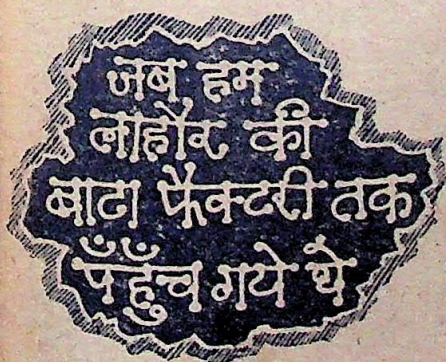 जब हम
लाहौर की
बाटा फैक्टरी तक
पहुँच गये थे